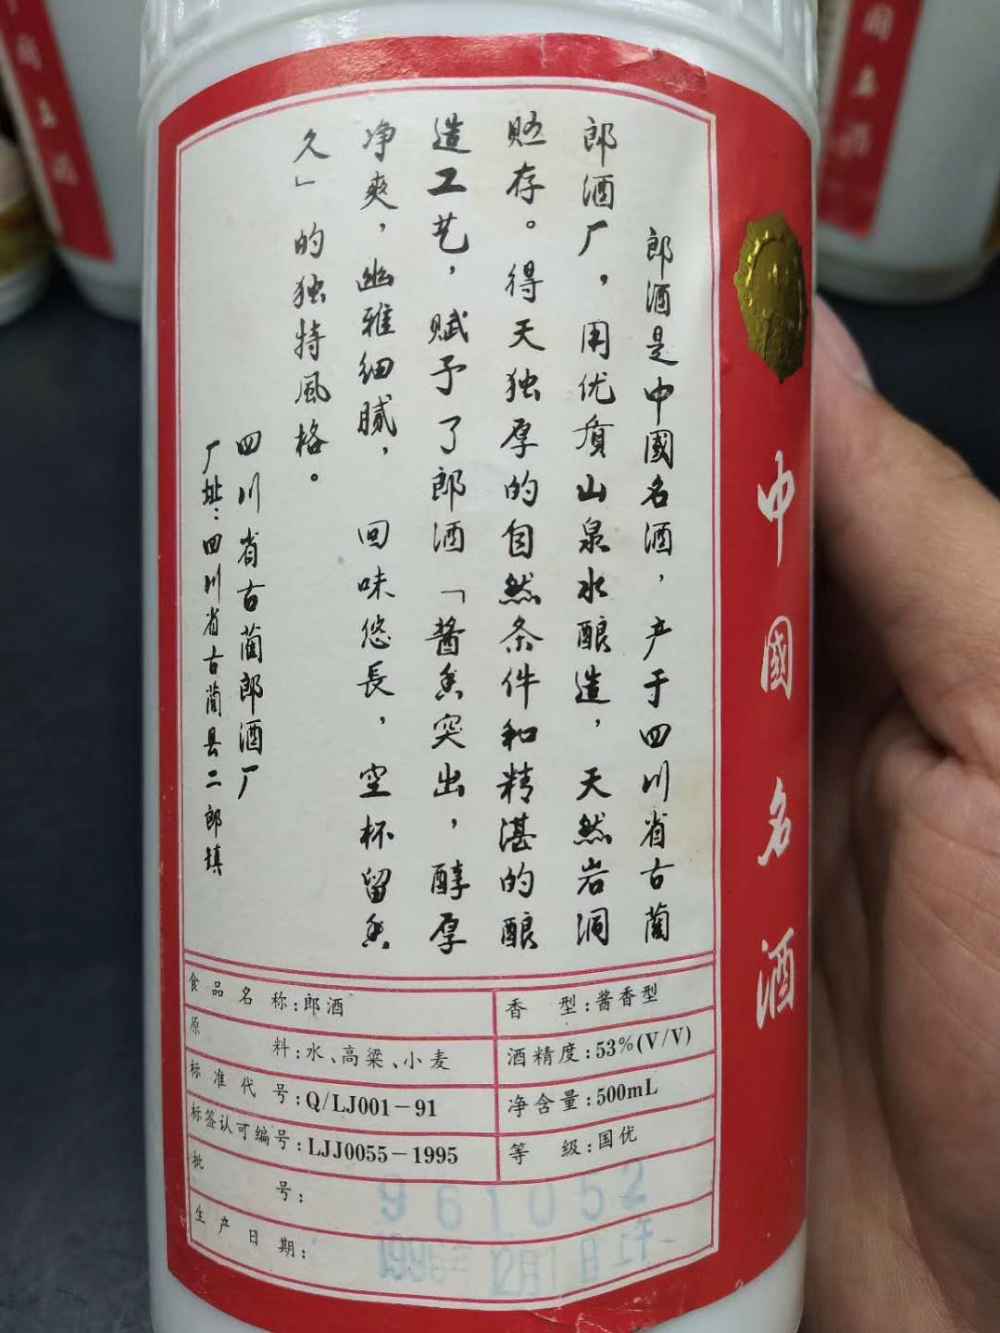 郎酒是中國名酒，产于四川省古蔺
郎酒厂，用优质山泉水酿造，天然岩洞
贮存。得天独厚的自然条件和精湛的酿
造工艺，赋予了郎酒「酱香突出，醇厚
净爽，幽雅细腻，回味悠長，空杯留香
久」的独特風格。
四川省古蔺郎酒厂
厂址：四川省古蔺县二郎镇
中國名酒
食品名称:郎酒
香型:酱香型
原料:水、高粱、小麦
酒精度:53%(V/V)
标准代号:Q/LJ001-91
净含量:500mL
标签认可编号:LJJ0055-1995
等级:国优
批号: 961052
生产日期: 1996年12月1日